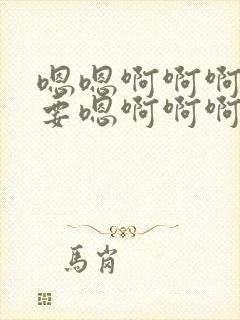 嗯嗯啊啊啊
要嗯啊啊啊
馬肖